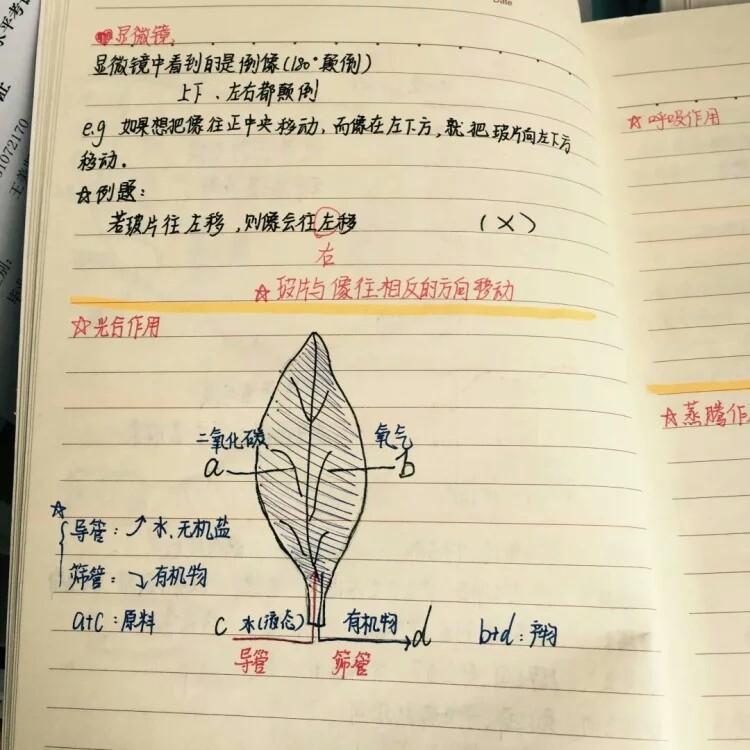 Date
显微镜
显微镜中看到的是倒像(180°颠倒)
上下、左右都颠倒
e.g 如果想把像往正中央移动,而像在左下方,就把玻片向左下方
移动。
☆例题:
若玻片往左移,则像会往左移 (×)
右
☆玻片与像往相反的方向移动
☆光合作用
二氧化碳 氧气
a b
☆
导管:↗水、无机盐
筛管:↘有机物
a+c:原料
c 水(液态) 有机物 d b+d:产物
导管 筛管
☆呼吸作用
☆蒸腾作
水平考
证
31072170